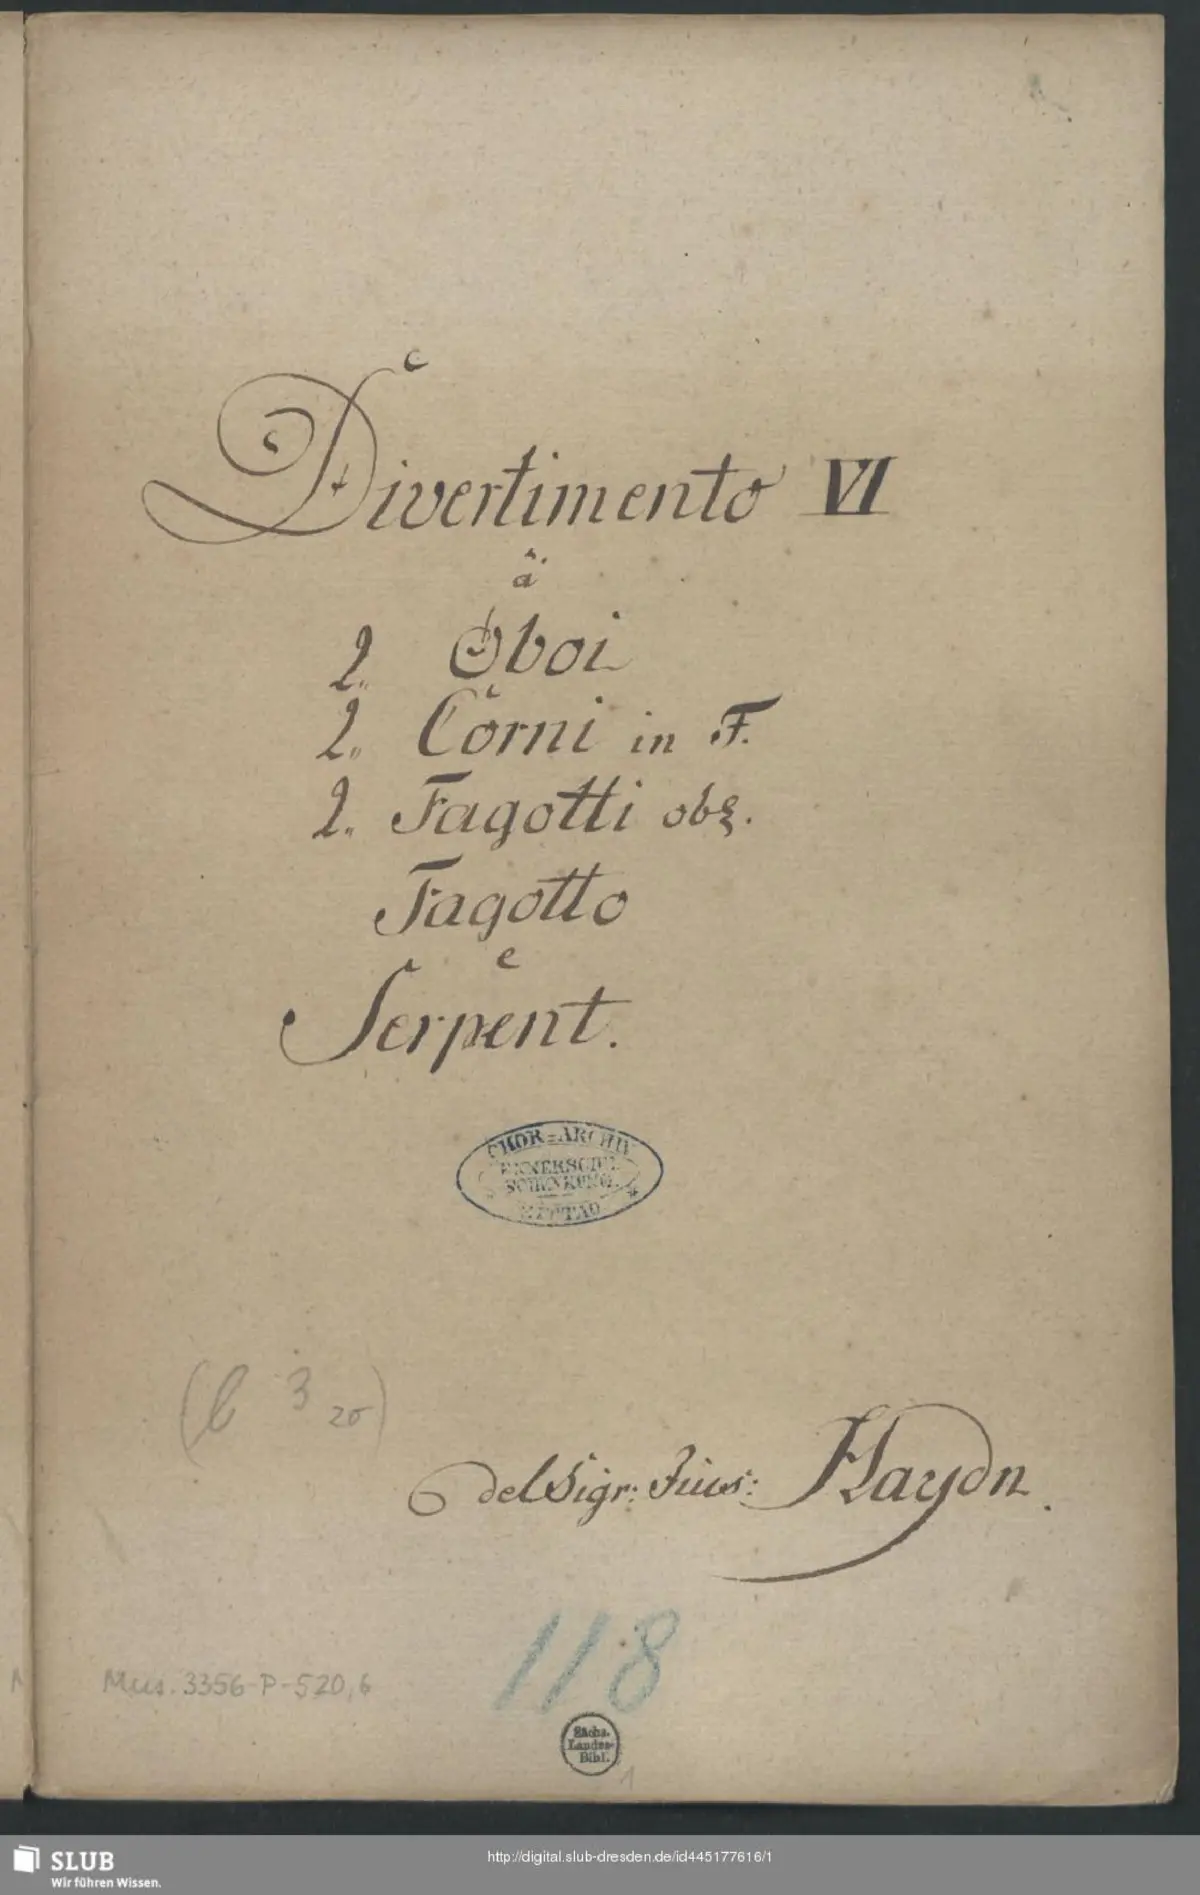 Divertimento VI
à
2. Oboi
2. Corni in F.
2. Fagotti obg.
Fagotto
e
Serpent.
CHOR=ARCHIV
SCHENKUNG.
ZITTAU
(b 3 20)
del Sigr: Haydn.
118
Mus. 3356-P-520,6
Sächs.
Landes-
Bibl.
1
SLUB
Wir führen Wissen.
http://digital.slub-dresden.de/id445177616/1